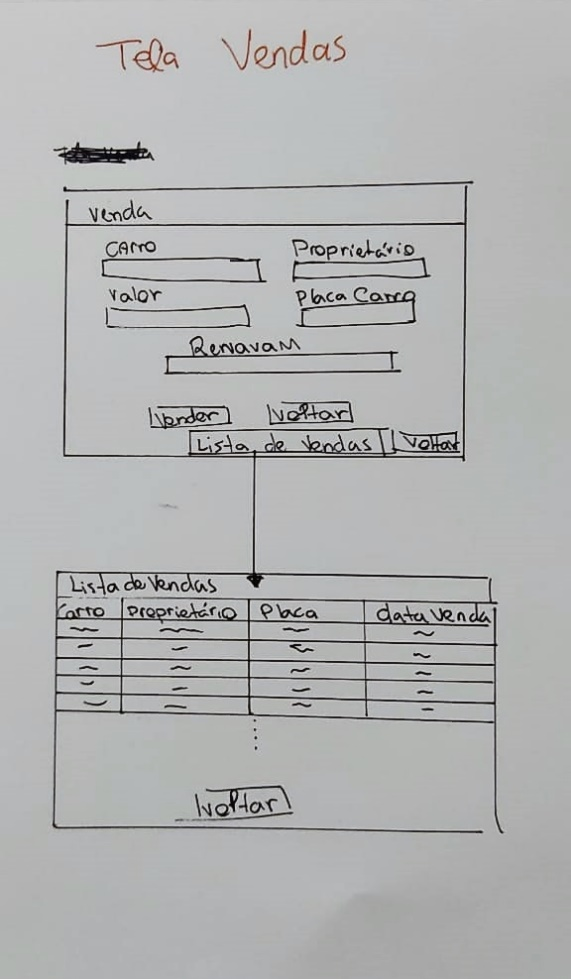 Tela Vendas
Venda
CArro Proprietário
Valor Placa Carro
RenavaM
Vender Voltar
Lista de Vendas Voltar
Lista de Vendas
Carro Proprietário Placa data Venda
Voltar